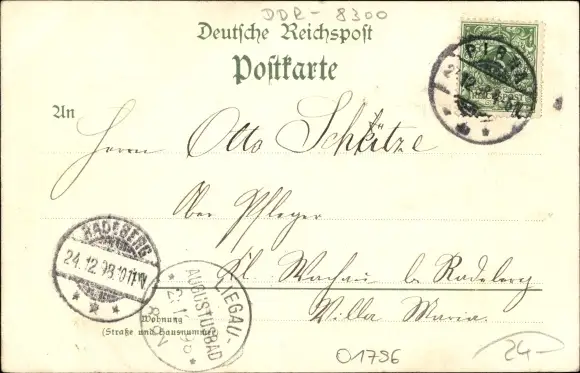 DDR - 8300
Deutsche Reichspost
Postkarte
PIRNA
An
Herrn Otto Schütze
Ober Pfleger
Kl. Wachau b. Radeberg
Villa Maria.
RADEBERG
24.12.98.10-11.V.
LIEGAU-
AUGUSTUSBAD
Wohnung
(Straße und Hausnummer)
01796
24-